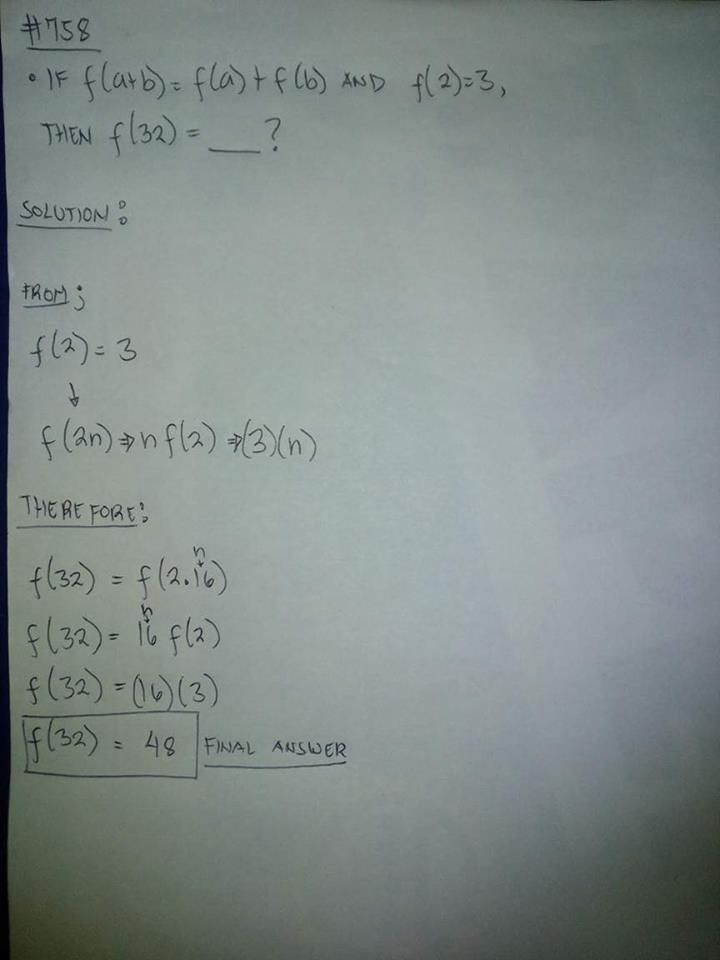 #758
• IF f(a+b) = f(a) + f(b) AND f(2)=3,
THEN f(32) = ___ ?
SOLUTION:
FROM;
f(2) = 3
↓
f(2n) ⇒ n f(2) ⇒ (3)(n)
THEREFORE:
n
f(32) = f(2·16)
n
f(32) = 16 f(2)
f(32) = (16)(3)
f(32) = 48 FINAL ANSWER